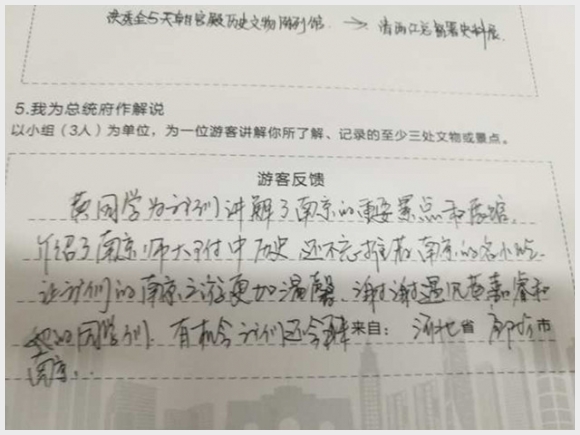 洪秀全与天朝宫殿历史文物陈列馆 → 清两江总督署史料展
5.我为总统府作解说
以小组（3人）为单位，为一位游客讲解你所了解、记录的至少三处文物或景点。
游客反馈
黄同学为我们讲解了南京的重要景点和展馆,
介绍了南京师大附中历史 还不忘推荐南京的名小吃.
让我们的南京之游更加温馨 谢谢遇见黄 和
她的同学们. 有机会我们还会再来自： 河北省 廊坊市
南京...